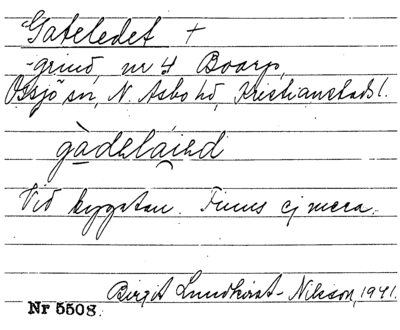 Gateledet +
-grind, nr 4 Boarp,
Össjö sn, N. Åsbo hd, Kristianstads l.
gàdəlà̱i̯əd
Vid bygatan. Finns ej mera.
Birgit Lundkvist-Nilsson, 1941.
Nr 5508.